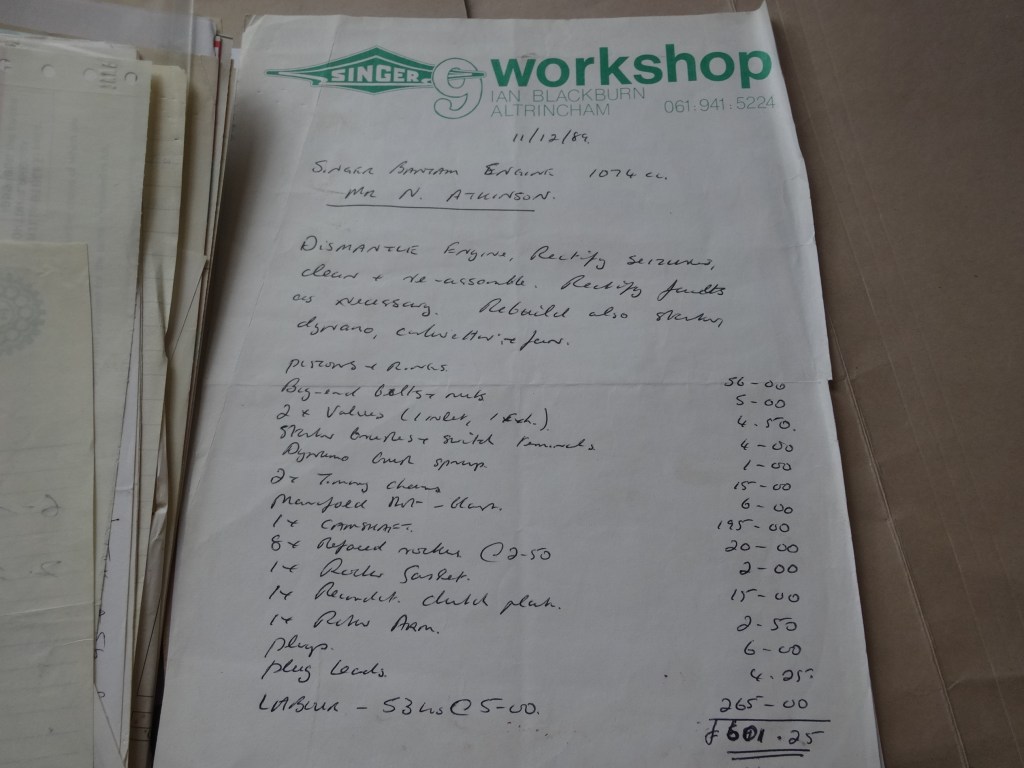 SINGER g workshop
IAN BLACKBURN
ALTRINCHAM 061.941.5224
11/12/89.
SINGER BANTAM ENGINE 1074 cc.
MR N. ATKINSON.
DISMANTLE ENGINE, Rectify seizures,
clean + re-assemble. Rectify faults
as necessary. Rebuild also starter,
dynamo, carburetter + fan.
PISTONS + RINGS. 56-00
Big-end bolts + nuts 5-00
2 x Valves (1 inlet, 1 Exh.) 4.50.
Starter brushes + switch terminals 4-00
Dynamo brush springs. 1-00
2 x Timing chains 15-00
Manifold 6-00
1 x CAMSHAFT. 195-00
8 x Refaced rocker @ 2-50 20-00
1 x Rocker Gasket. 2-00
1 x Recondit. clutch plate. 15-00
1 x Rotor ARM. 2-50
plugs. 6-00
plug leads. 4.25
LABOUR - 53 hrs @ 5-00. 265-00
£601.25